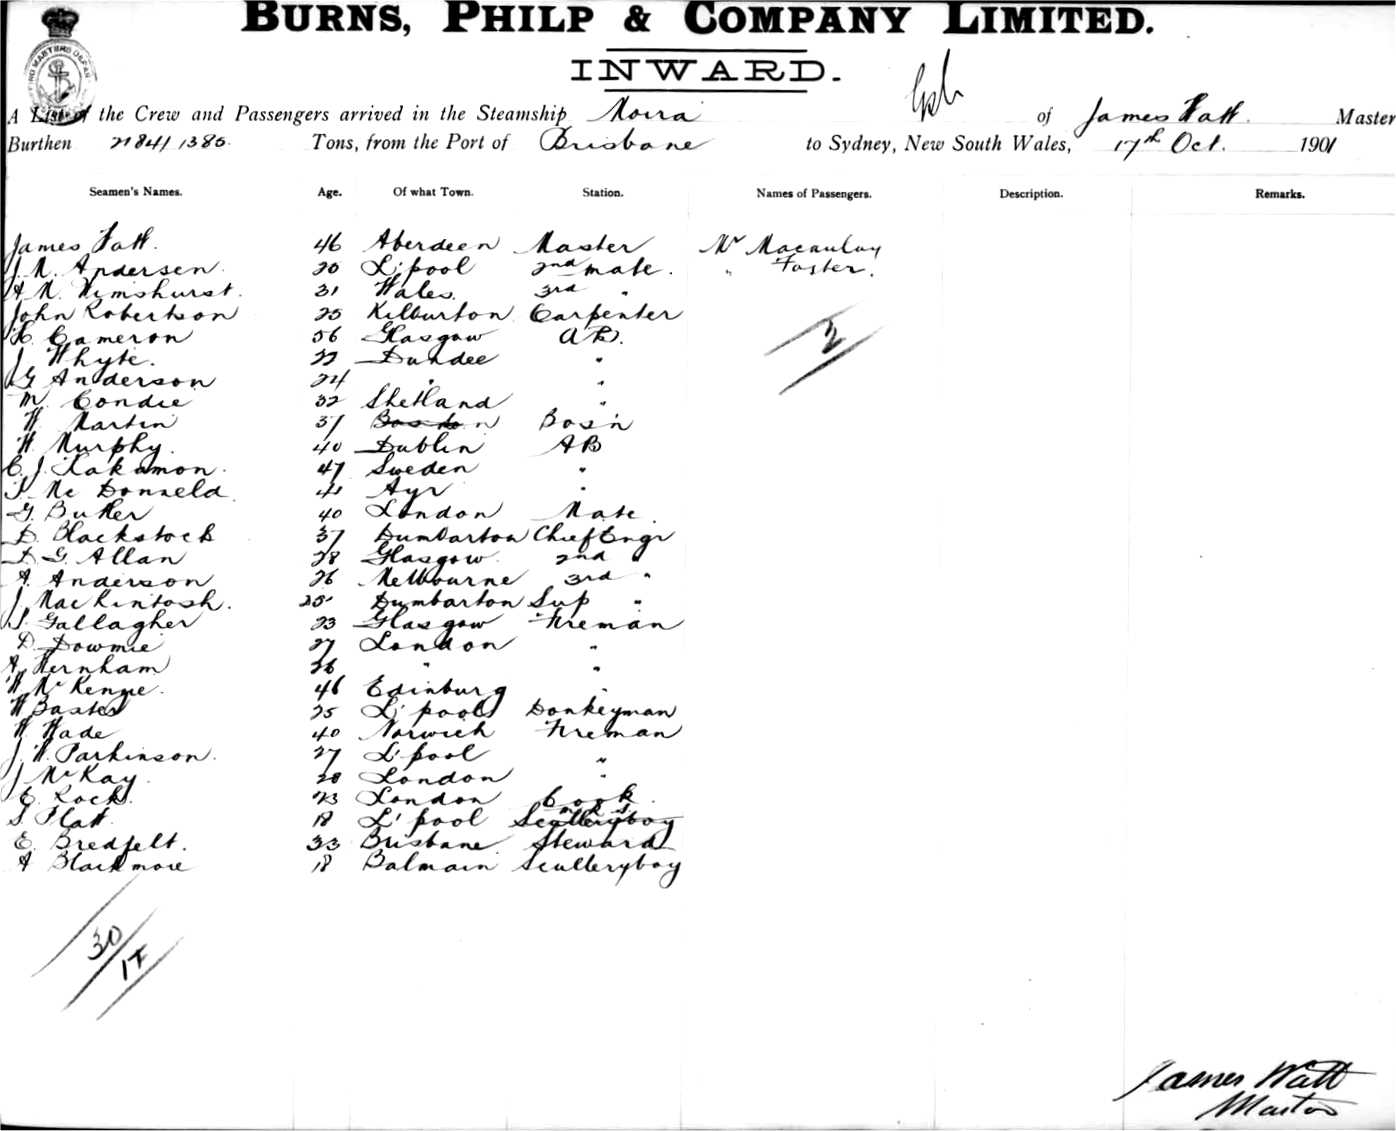 BURNS, PHILP & COMPANY LIMITED.
INWARD.
A List of the Crew and Passengers arrived in the Steamship Moira of James Watt Master
Burthen 2184/1385 Tons, from the Port of Brisbane to Sydney, New South Wales, 17th Oct. 1901
Seamen's Names. Age. Of what Town. Station. Names of Passengers. Description. Remarks.
James Watt. 46 Aberdeen Master Mr Macaulay
J. N. Andersen. 20 L'pool 2nd mate. " Foster.
A N. Wimshurst. 31 Wales. 3rd "
John Robertson 25 Kilburton Carpenter
H. Cameron 56 Glasgow AB. 2
J Whyte. 22 Dundee "
G Anderson 24 " "
M. Condie 32 Shetland "
W. Martin 37 Boston Bos'n
W. Murphy. 40 Dublin AB
C. J. 47 Sweden "
J. Mc Donneld 41 Ayr "
G. Butler 40 London Mate.
D. Blackstock 37 Dumbarton Chief Engr
D. G. Allan 28 Glasgow. 2nd "
A. Anderson 26 Melbourne 3rd "
J. MacKintosh. 25 Dumbarton Sup "
J. Gallagher 23 Glasgow Fireman
D. Downie 27 London "
A. Hernham 26 " "
W. McKenzie. 46 Edinburg "
W Baxter 25 L'pool Donkeyman
W Wade 40 Norwich Fireman
J. W. Parkinson. 27 L'pool "
J McKay. 28 London "
E. Rock. 23 London Cook.
S Platt. 18 L'pool Sculleryboy
E. Bredfelt. 33 Brisbane Steward
A Blackmore 18 Balmain Sculleryboy
30/17
James Watt
Master